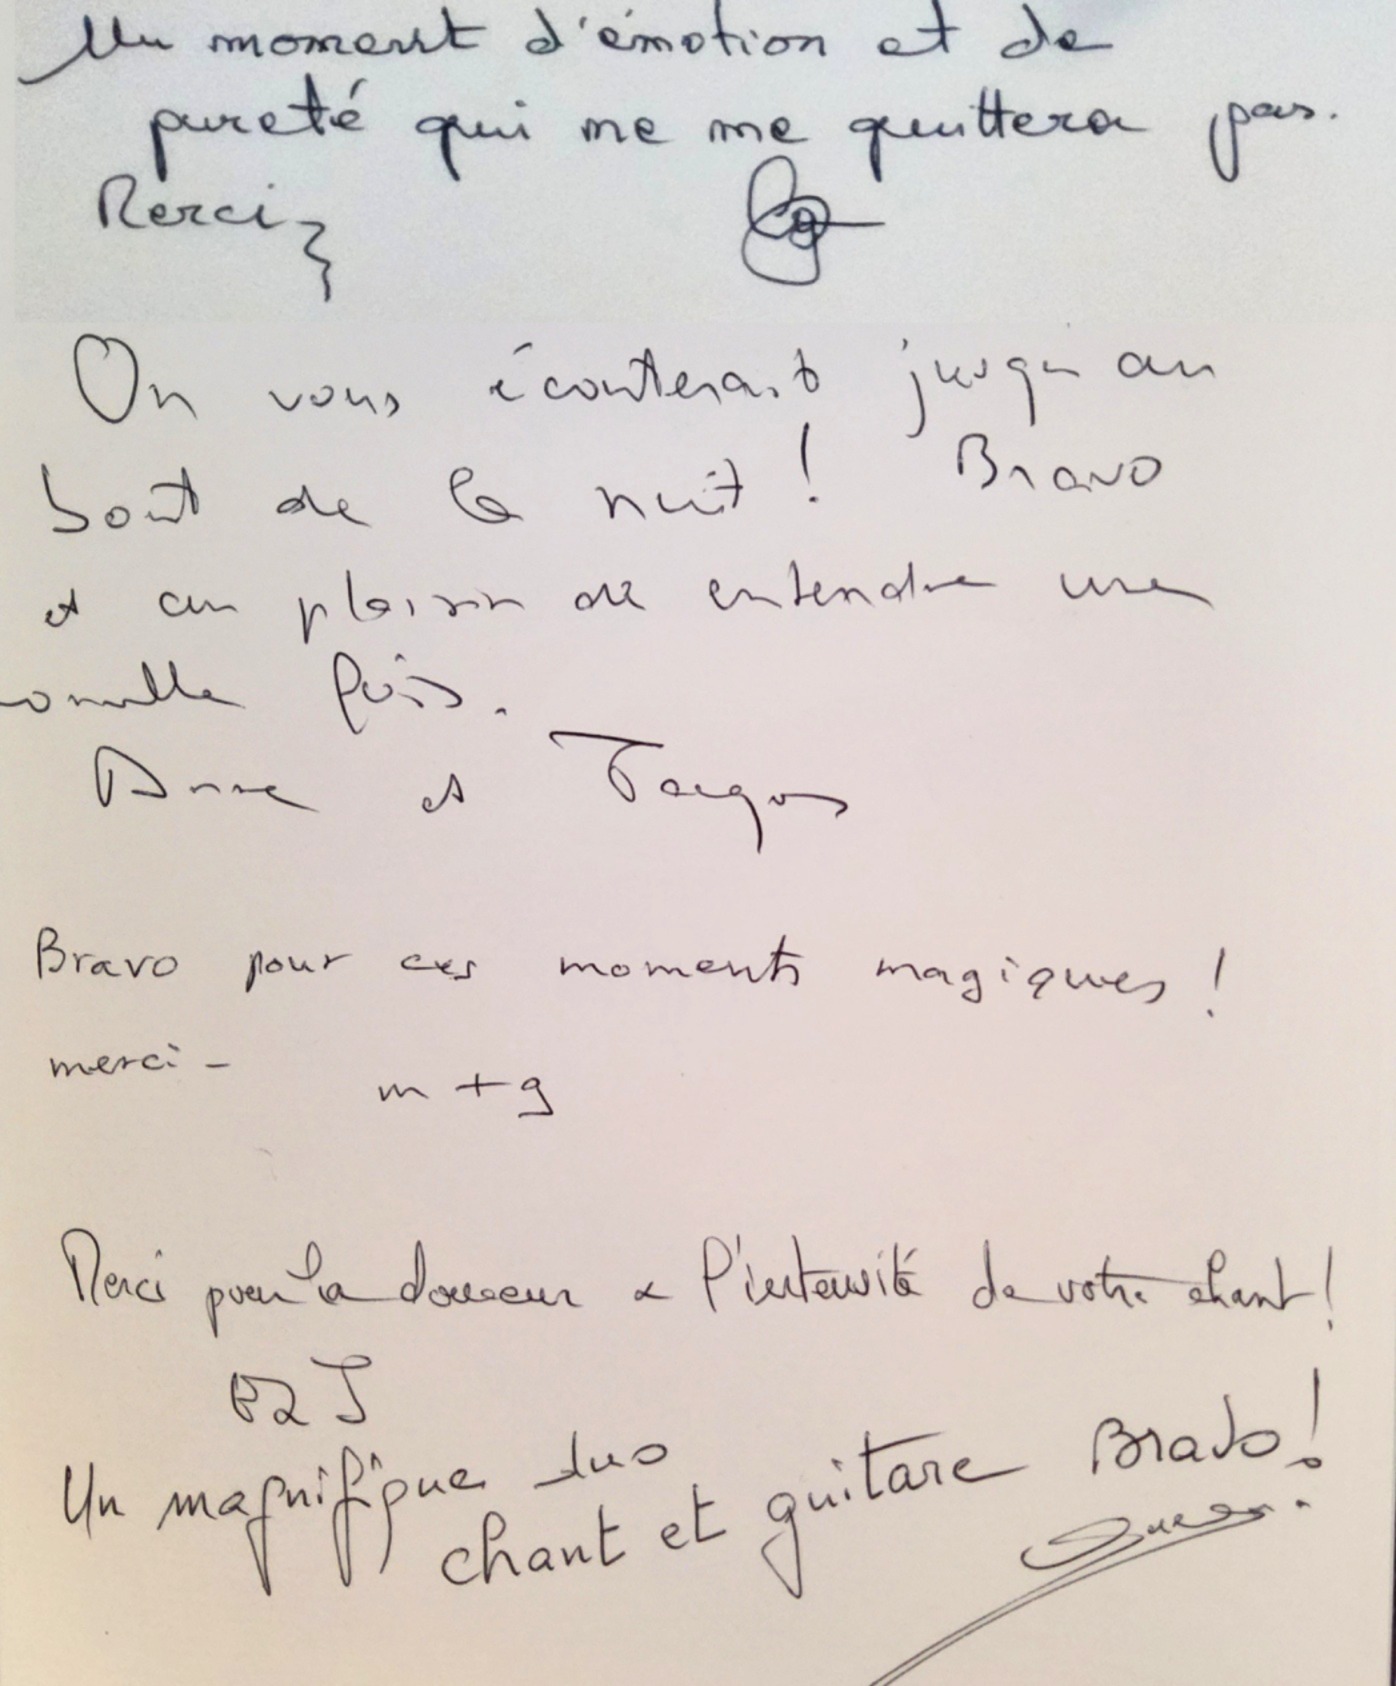 Un moment d'émotion et de
pureté qui ne me quittera pas.
Merci
On vous écouterait jusqu'au
bout de la nuit ! Bravo
et au plaisir de entendre une
nouvelle fois.
Anne et
Bravo pour ces moments magiques !
merci -
m + g
Merci pour la douceur & l'intensité de votre chant !
Un magnifique duo
chant et guitare Bravo !